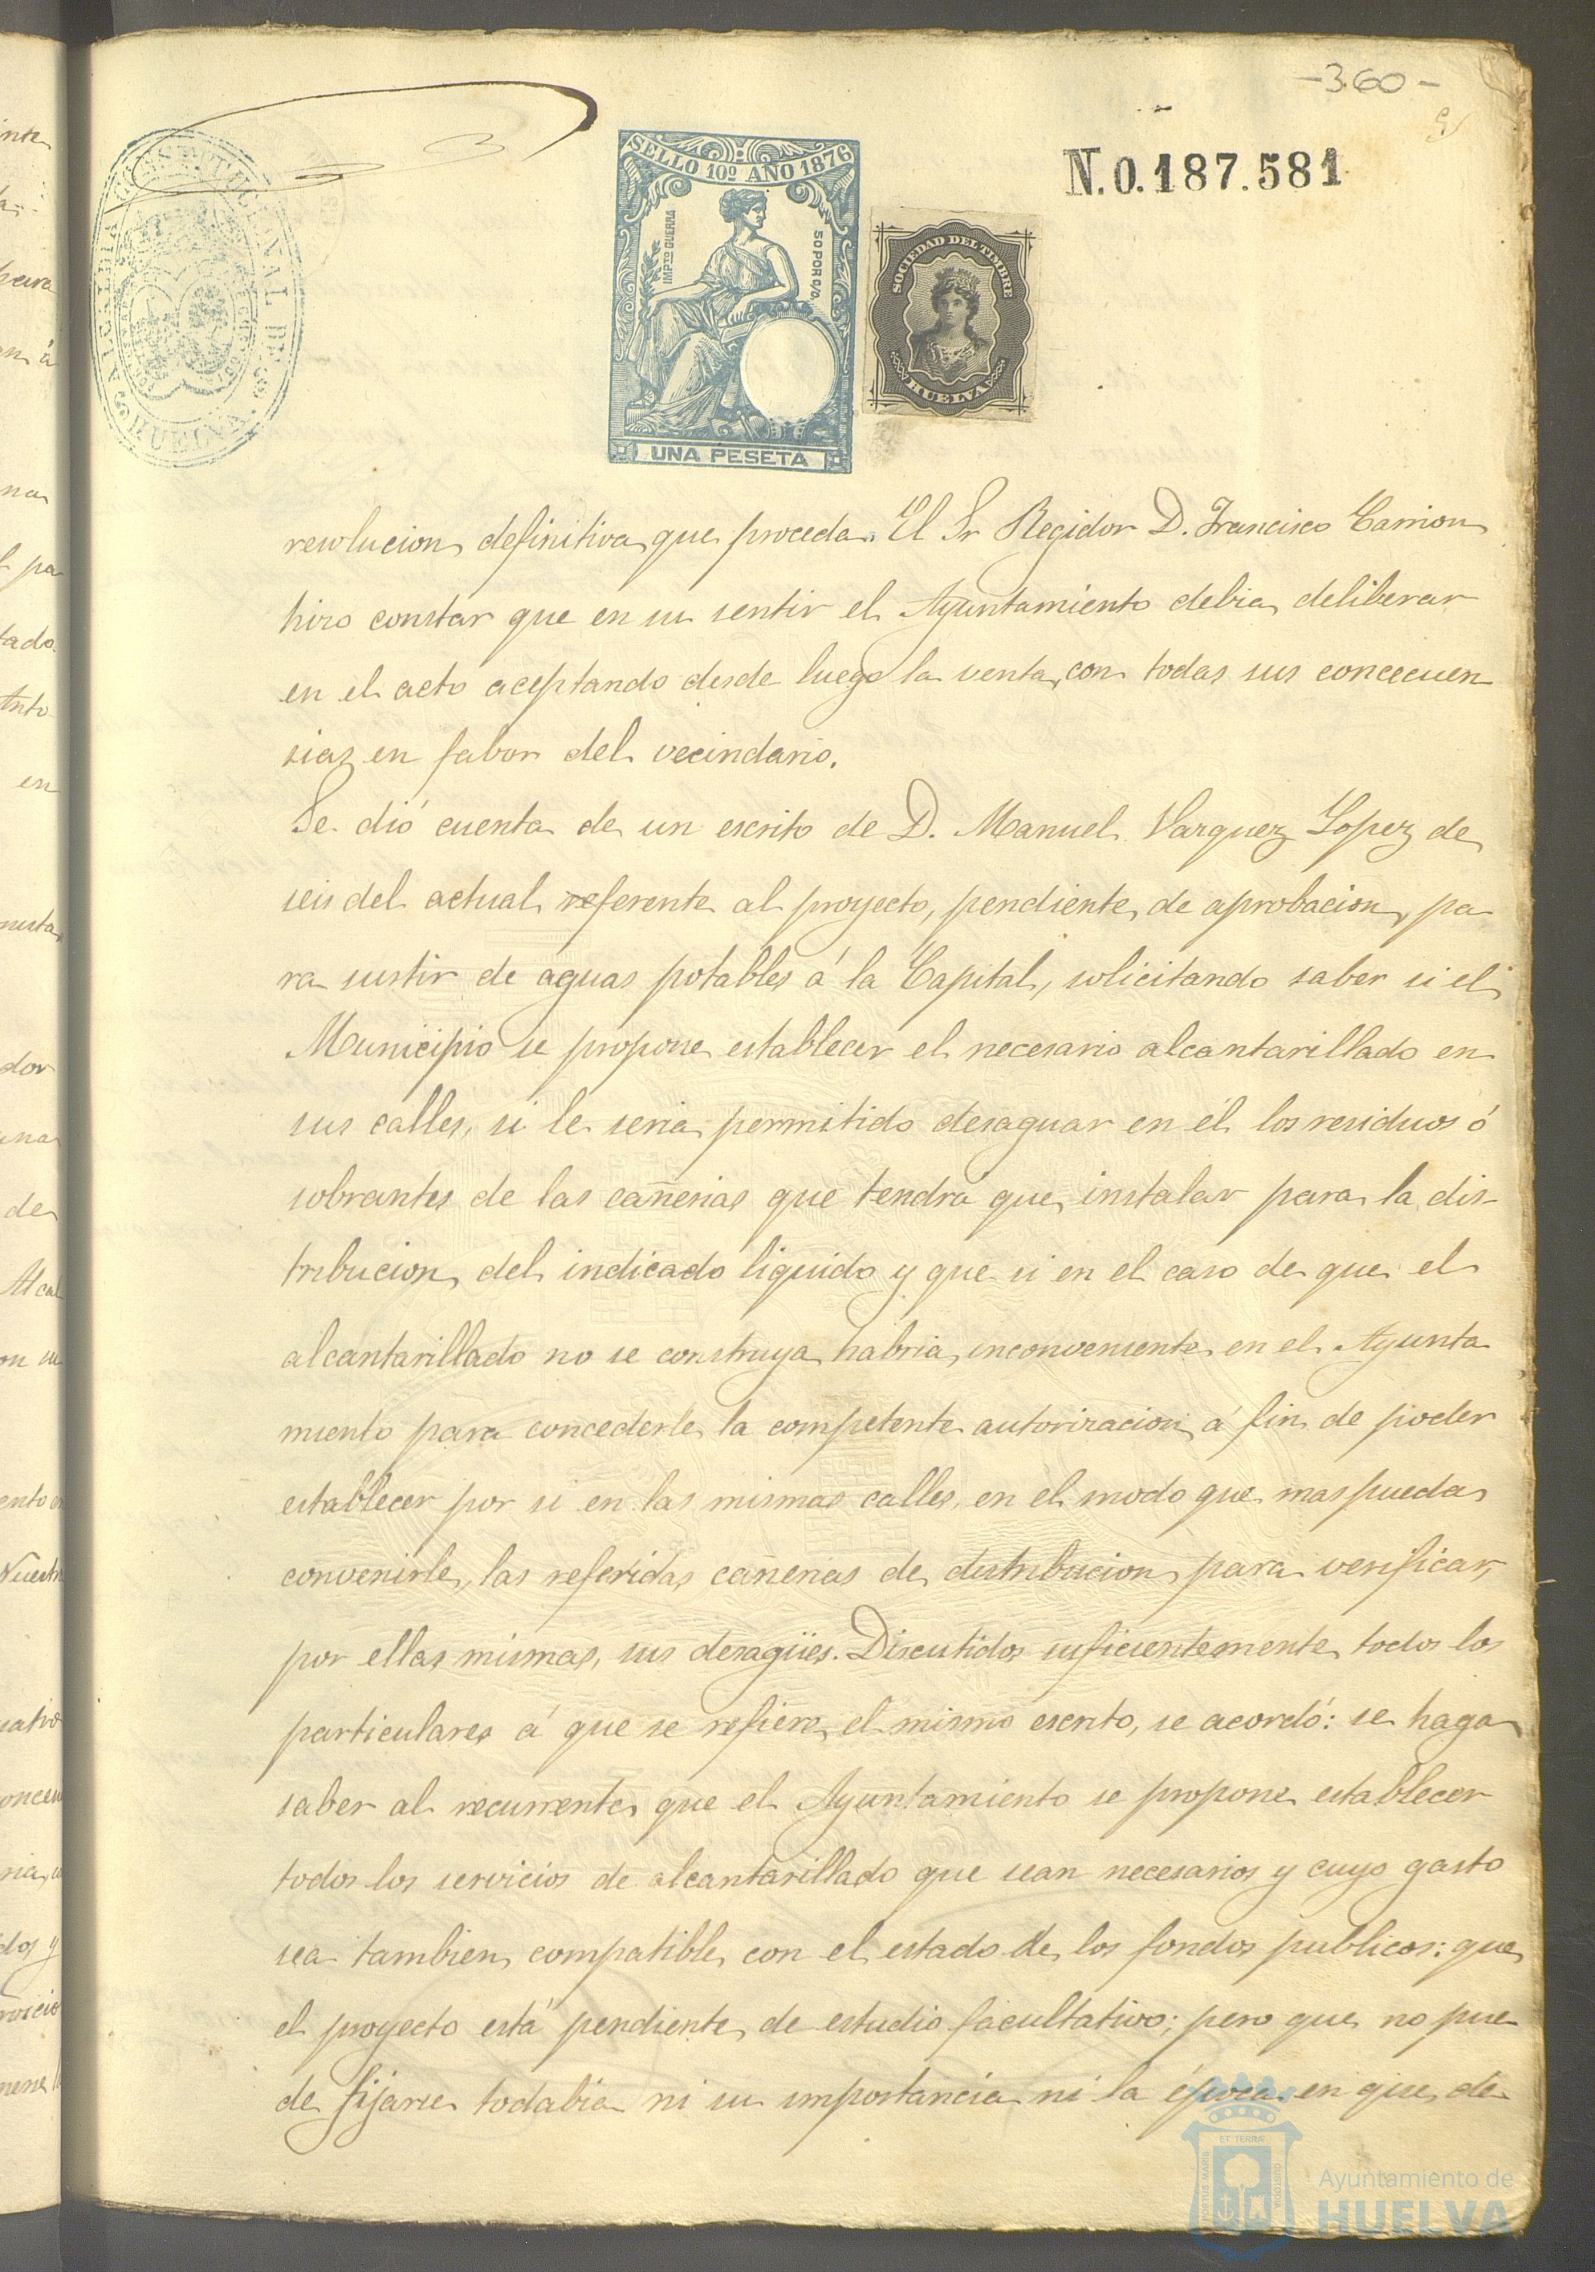 -360-
N.0.187.581
ALCALDIA CONSTITUCIONAL DE HUELVA
SELLO 10º AÑO 1876
IMPTO GUERRA
50 POR 0/0
UNA PESETA
SOCIEDAD DEL TIMBRE
HUELVA
resolucion definitiva que proceda. El Sr Regidor D. Francisco Carrion
hizo constar que en su sentir el Ayuntamiento debia deliberar
en el acto aceptando desde luego la venta con todas sus concecuen
sias en fabor del vecindario.
Se dió cuenta de un escrito de D. Manuel Vazquez Lopez de
seis del actual referente al proyecto, pendiente de aprobacion, pa
ra surtir de aguas potables á la Capital, solicitando saber si el
Municipio se propone establecer el necesario alcantarillado en
sus calles, si le seria permitido desaguar en él los residuos ó
sobrantes de las cañerias que tendra que instalar para la dis-
tribucion del indicado liquido y que si en el caso de que el
alcantarillado no se construya habria inconveniente en el Ayunta
miento para concederle la competente autorizacion á fin de poder
establecer por si en las mismas calles, en el modo que mas pueda
convenirle, las referidas cañerias de distribucion para verificar,
por ellas mismas, sus desagües. Discutidos suficientemente todos los
particulares á que se refiere el mismo escrito, se acordó: se haga
saber al recurrente que el Ayuntamiento se propone establecer
todos los servicios de alcantarillado que sean necesarios y cuyo gasto
sea tambien compatible con el estado de los fondos publicos: que
el proyecto está pendiente de estudio facultativo; pero que no pue-
de fijarse todabia ni su importancia ni la época en que de-
Ayuntamiento de
HUELVA